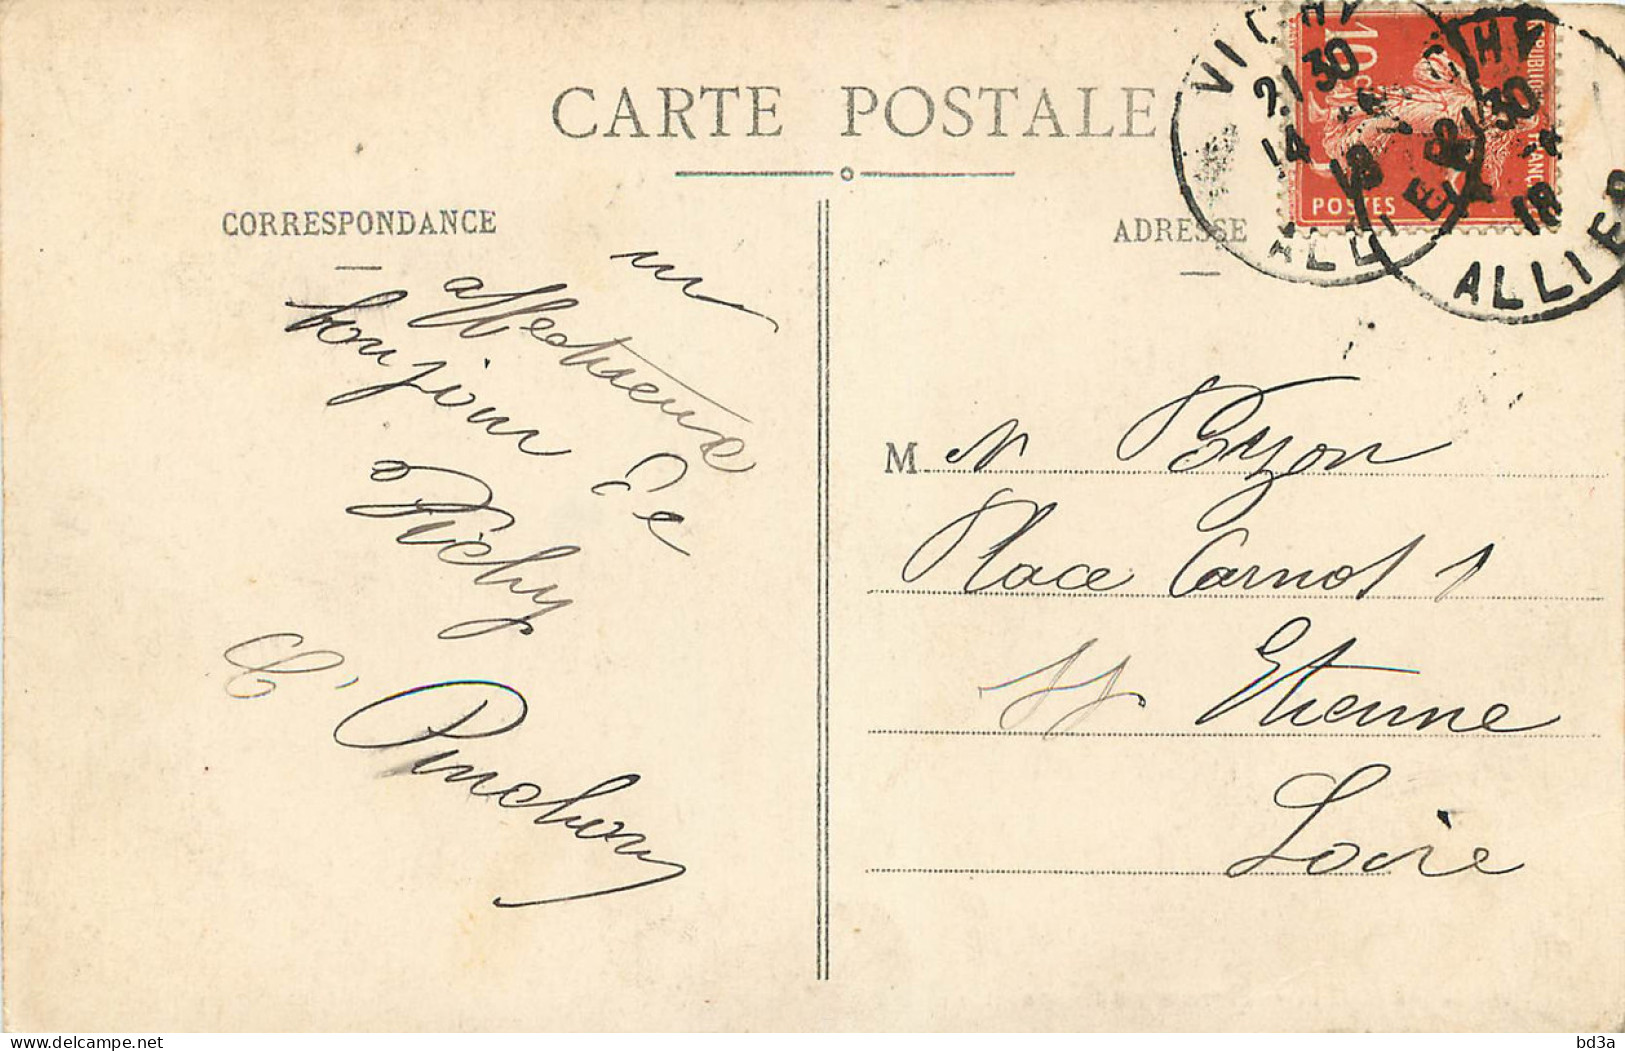 CARTE POSTALE
CORRESPONDANCE
ADRESSE
un
affectueux
bonjour De
Vichy
C. Pinchon
M. r Byon
Place Carnot 1
St Etienne
Loire
VICHY
21 30
14
18
ALLIER
VICHY
21 30
18
ALLIER
10 c
POSTES
bd3a
www.delcampe.net